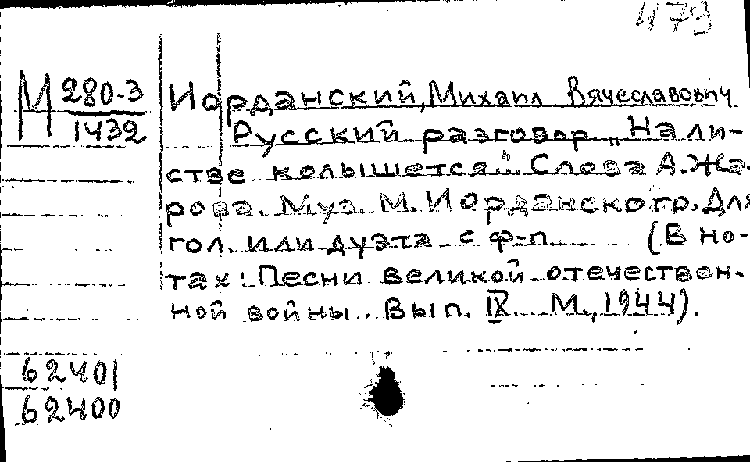 479
М 280-3
1432
Иорданский, Михаил Вячеславович
Русский разговор „На ли-
стве колышется". Слова А. Жа-
рова. Муз. М. Иорданского. Для
гол. или дуэта с ф-п. (В но-
тах: Песни великой отечествен-
ной войны. Вып. IX. М., 1944).
62401
62400